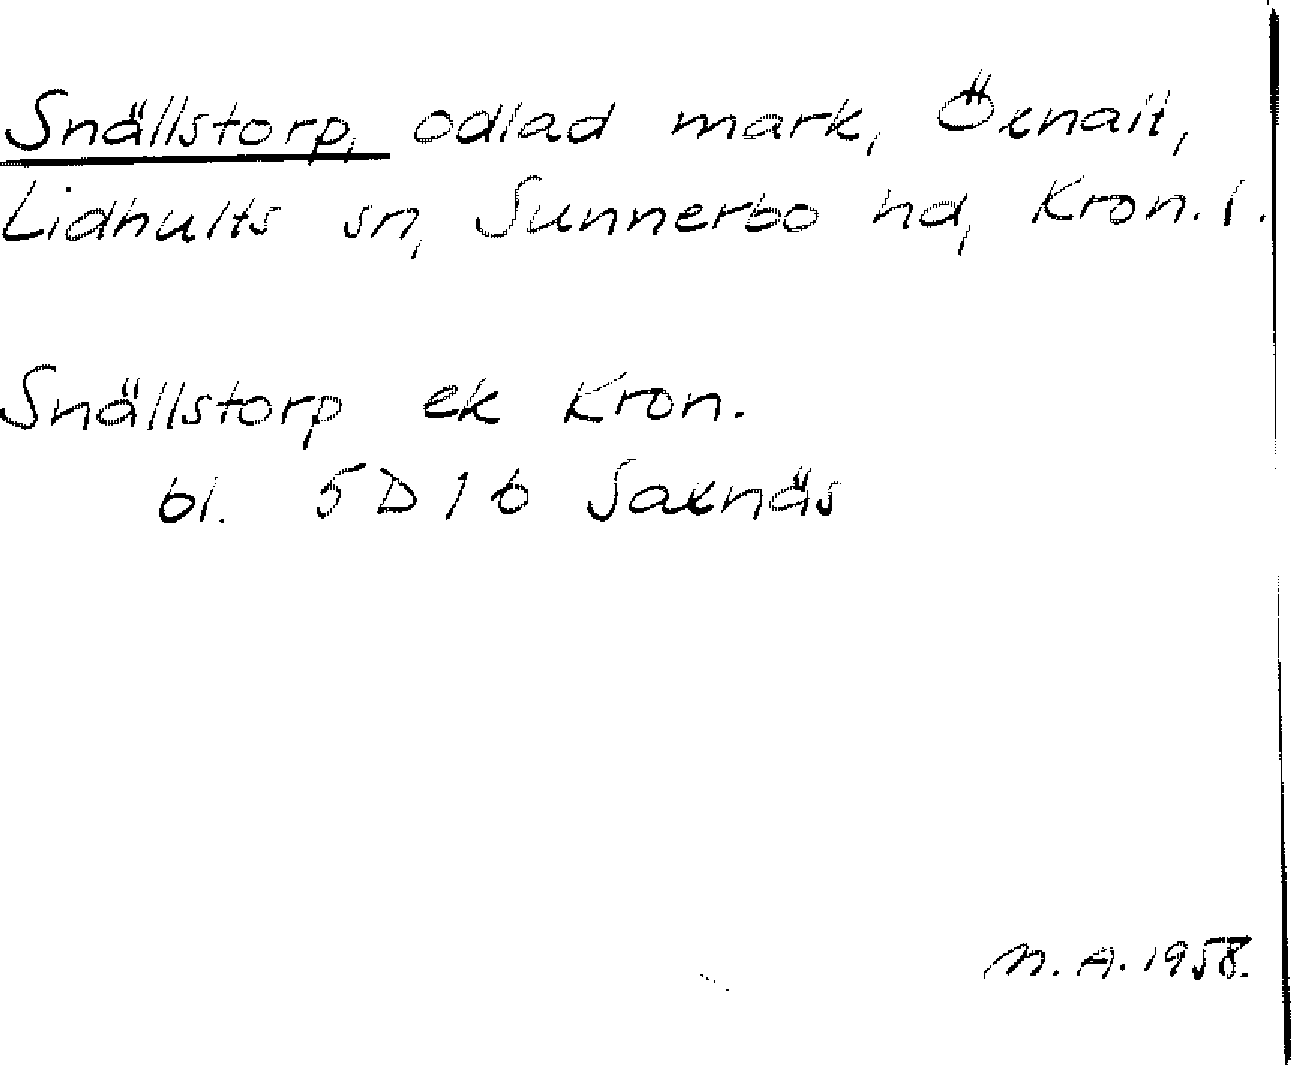 Snällstorp, odlad mark, Öxnalt,
Lidhults sn, Sunnerbo hd, Kron. l.
Snällstorp ek Kron.
bl. 5D1b Saxnäs
M. A. 1958.